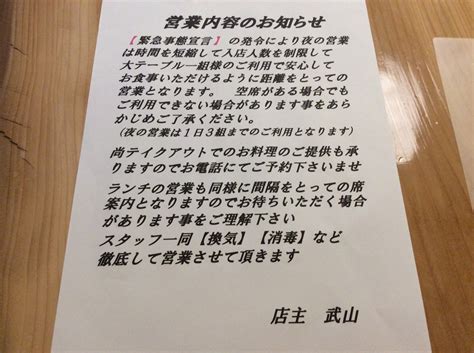 営業内容のお知らせ
【緊急事態宣言】の発令により夜の営業
は時間を短縮して入店人数を制限して
大テーブル一組様のご利用で安心して
お食事いただけるように距離をとっての
営業となります。　空席がある場合でも
ご利用できない場合があります事をあら
かじめご了承ください。
（夜の営業は１日３組までのご利用となります）
尚テイクアウトでのお料理のご提供も承
りますのでお電話にてご予約下さいませ
ランチの営業も同様に間隔をとっての席
案内となりますのでお待ちいただく場合
があります事をご理解下さい
スタッフ一同【換気】【消毒】など
徹底して営業させて頂きます
店主　武山